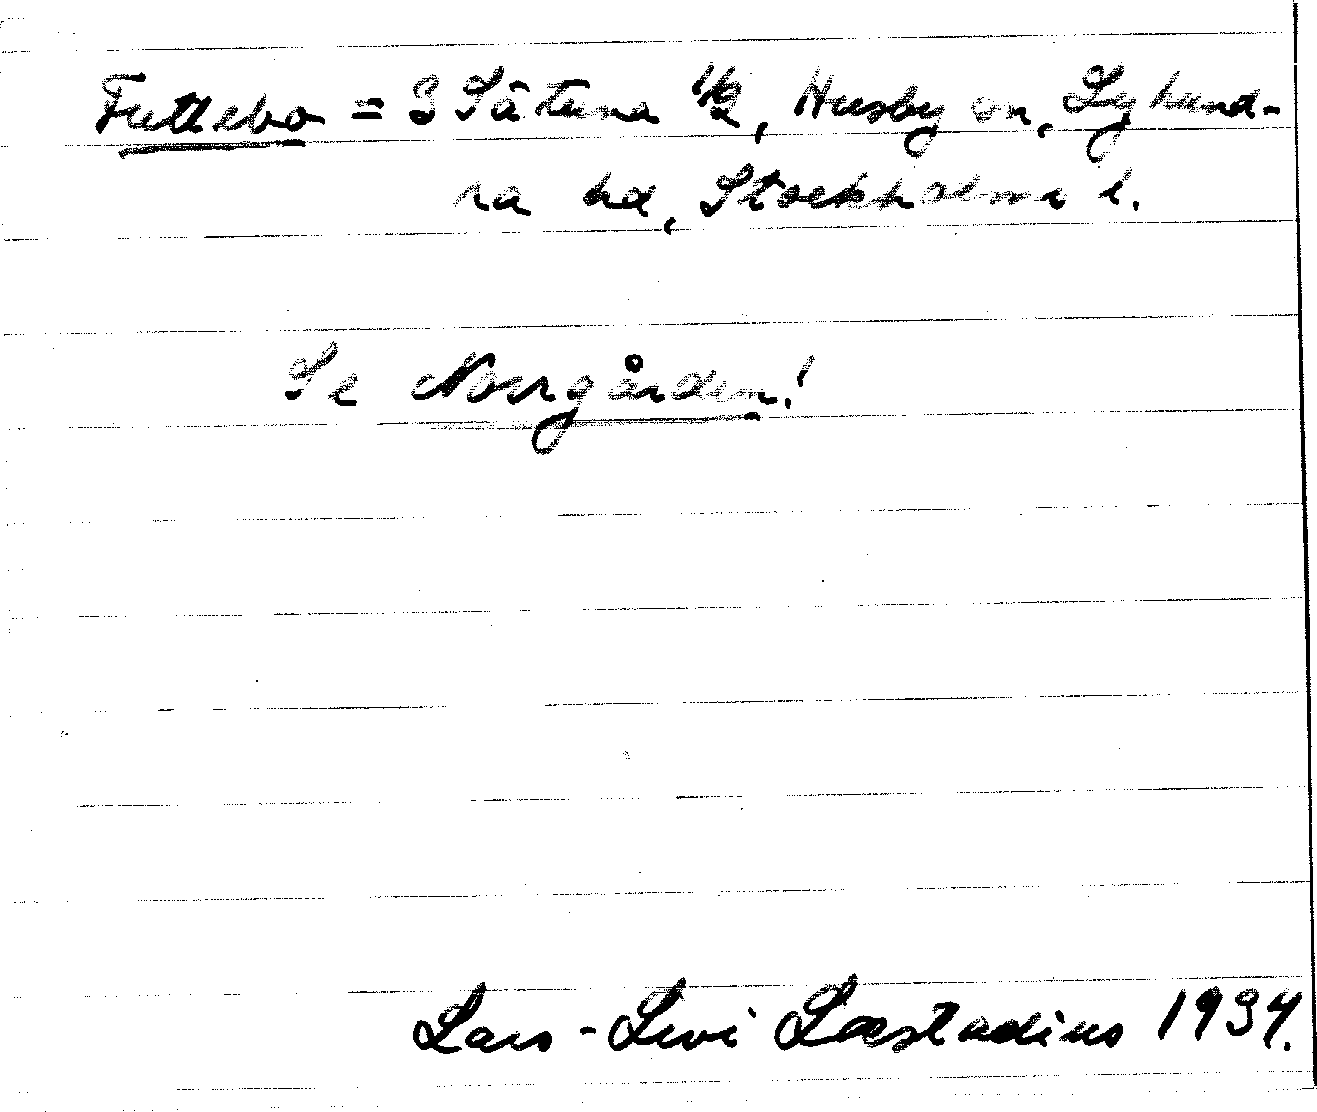 Futtebo = 3 Sätuna 1/2, Husby sn, Lyhund-
ra hd, Stockholms l.
Se Norrgården!
Lars-Levi Læstadius 1934.